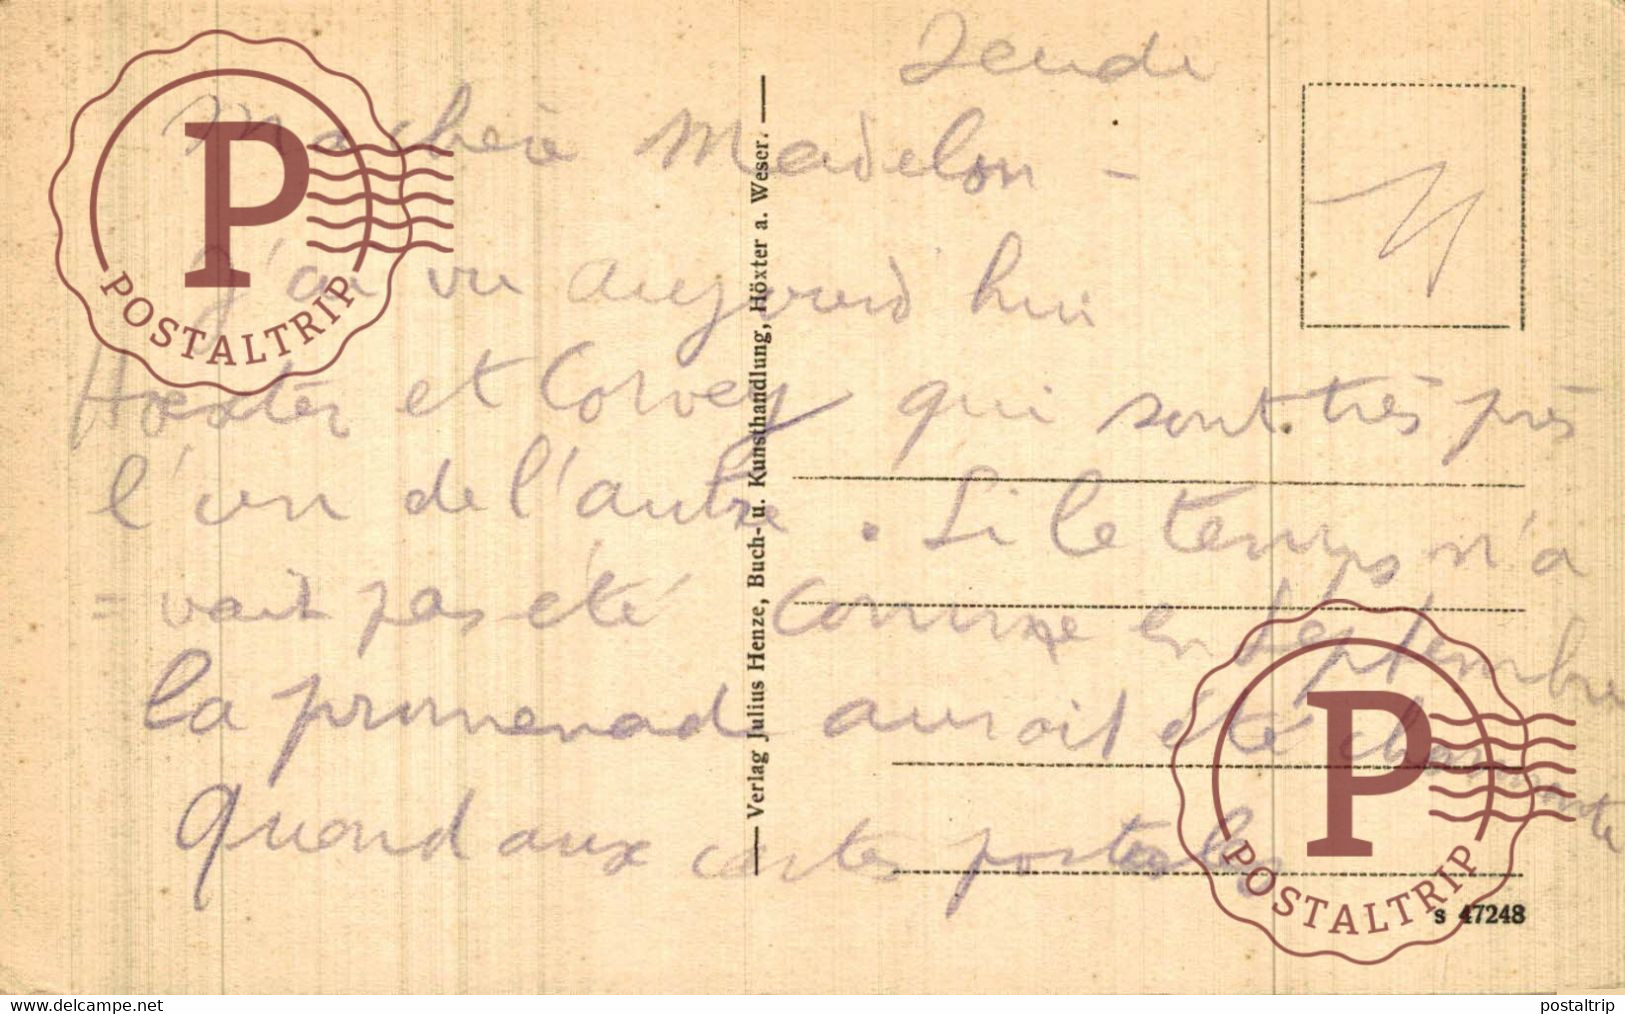 Jeudi
Ma chère Madelon -
j'ai vu aujourd'hui
Hoexter et Corvey qui sont très près
l'un de l'autre. Si le temps n'a
= vait pas été comme en Septembre
la promenade aurait été charmante
Quand aux cartes postales
Verlag Julius Henze, Buch- u. Kunsthandlung, Höxter a. Weser.
s 47248
P
POSTALTRIP
P
POSTALTRIP
www.delcampe.net
postaltrip